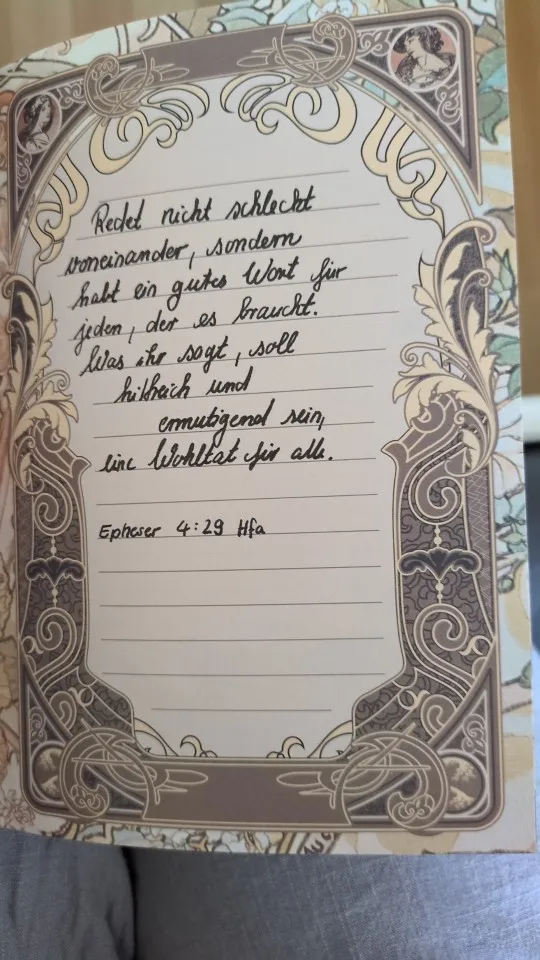 Redet nicht schlecht
voneinander, sondern
habt ein gutes Wort für
jeden, der es braucht.
Was ihr sagt, soll
hilfreich und
ermutigend sein,
eine Wohltat für alle.
Epheser 4:29 Hfa